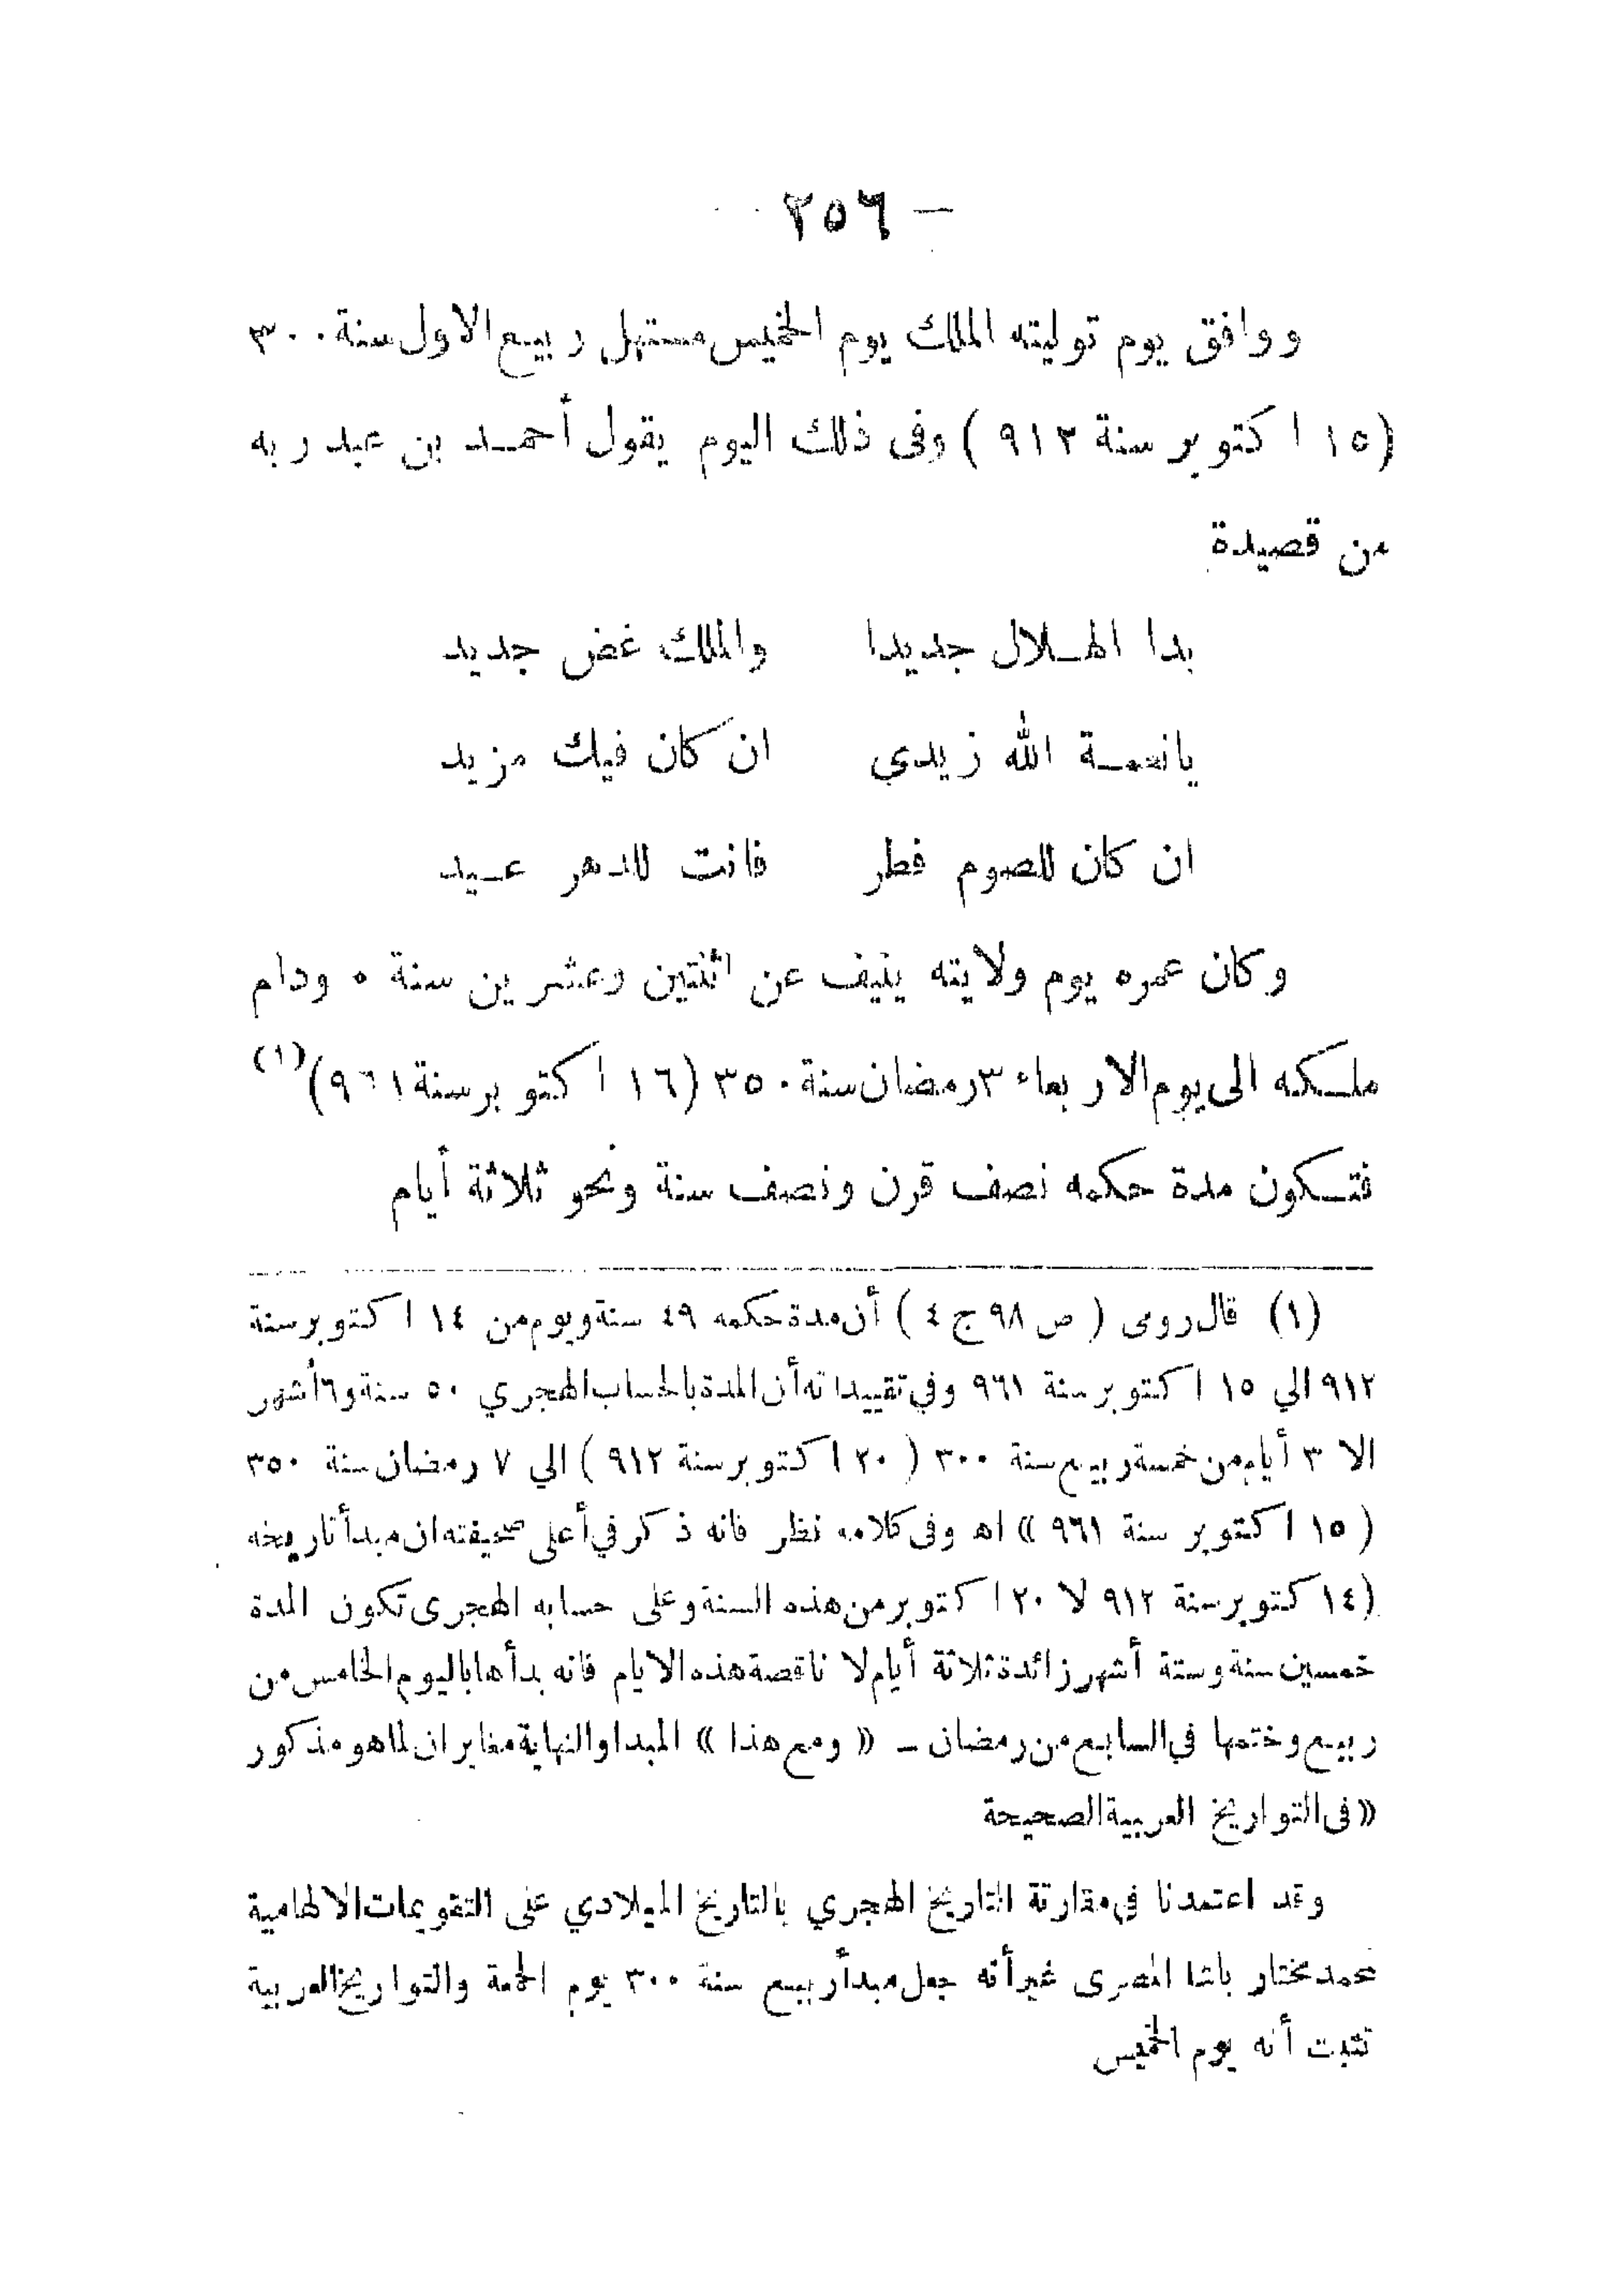 — ٢٥٦
ووافق يوم توليته الملك يوم الخميس مستهل ربيع الاول سنة ٣٠٠
(١٥ اكتوبر سنة ٩١٢) وفى ذلك اليوم يقول أحمد بن عبد ربه
من قصيدة
بدا الهلال جديدا والملك غض جديد
يانعمة الله زيدي ان كان فيك مزيد
ان كان للصوم فطر فانت للدهر عيد
وكان عمره يوم ولايته ينيف عن اثنتين وعشرين سنة ٥ ودام
ملكه الى يوم الاربعاء ٣ رمضان سنة ٣٥٠ (١٦ اكتوبر سنة ٩٦١) (١)
فتكون مدة حكمه نصف قرن ونصف سنة ونحو ثلاثة أيام
(١) قال رومى ( ص ٩٨ ج ٤ ) أن مدة حكمه ٤٩ سنة ويوم من ١٤ اكتوبر سنة
٩١٢ الي ١٥ اكتوبر سنة ٩٦١ وفي تقييداته أن المدة بالحساب الهجري ٥٠ سنة و٦ أشهر
الا ٣ أيام من خمسة ربيع سنة ٣٠٠ ( ٢٠ اكتوبر سنة ٩١٢ ) الي ٧ رمضان سنة ٣٥٠
( ١٥ اكتوبر سنة ٩٦١ » اه وفى كلامه نظر فانه ذكر في أعلى صحيفته ان مبدأ تاريخه
(١٤ كتوبر سنة ٩١٢ لا ٢٠ اكتوبر من هذه السنة وعلى حسابه الهجرى تكون المدة
خمسين سنة وستة أشهر زائدة ثلاثة أيام لا ناقصة هذه الايام فانه بدأها باليوم الخامس من
ربيع وختمها في السابع من رمضان ـ « ومع هذا » المبدا والنهاية مغايران لما هو مذكور
« فى التواريخ العربية الصحيحة
وقد اعتمدنا في مقارنة التاريخ الهجري بالتاريخ الميلادي على التقويمات الالهامية
لمحمد مختار باشا المصرى غير أنه جعل مبدأ ربيع سنة ٣٠٠ يوم الجمعة والتواريخ العربية
تثبت أنه يوم الخميس